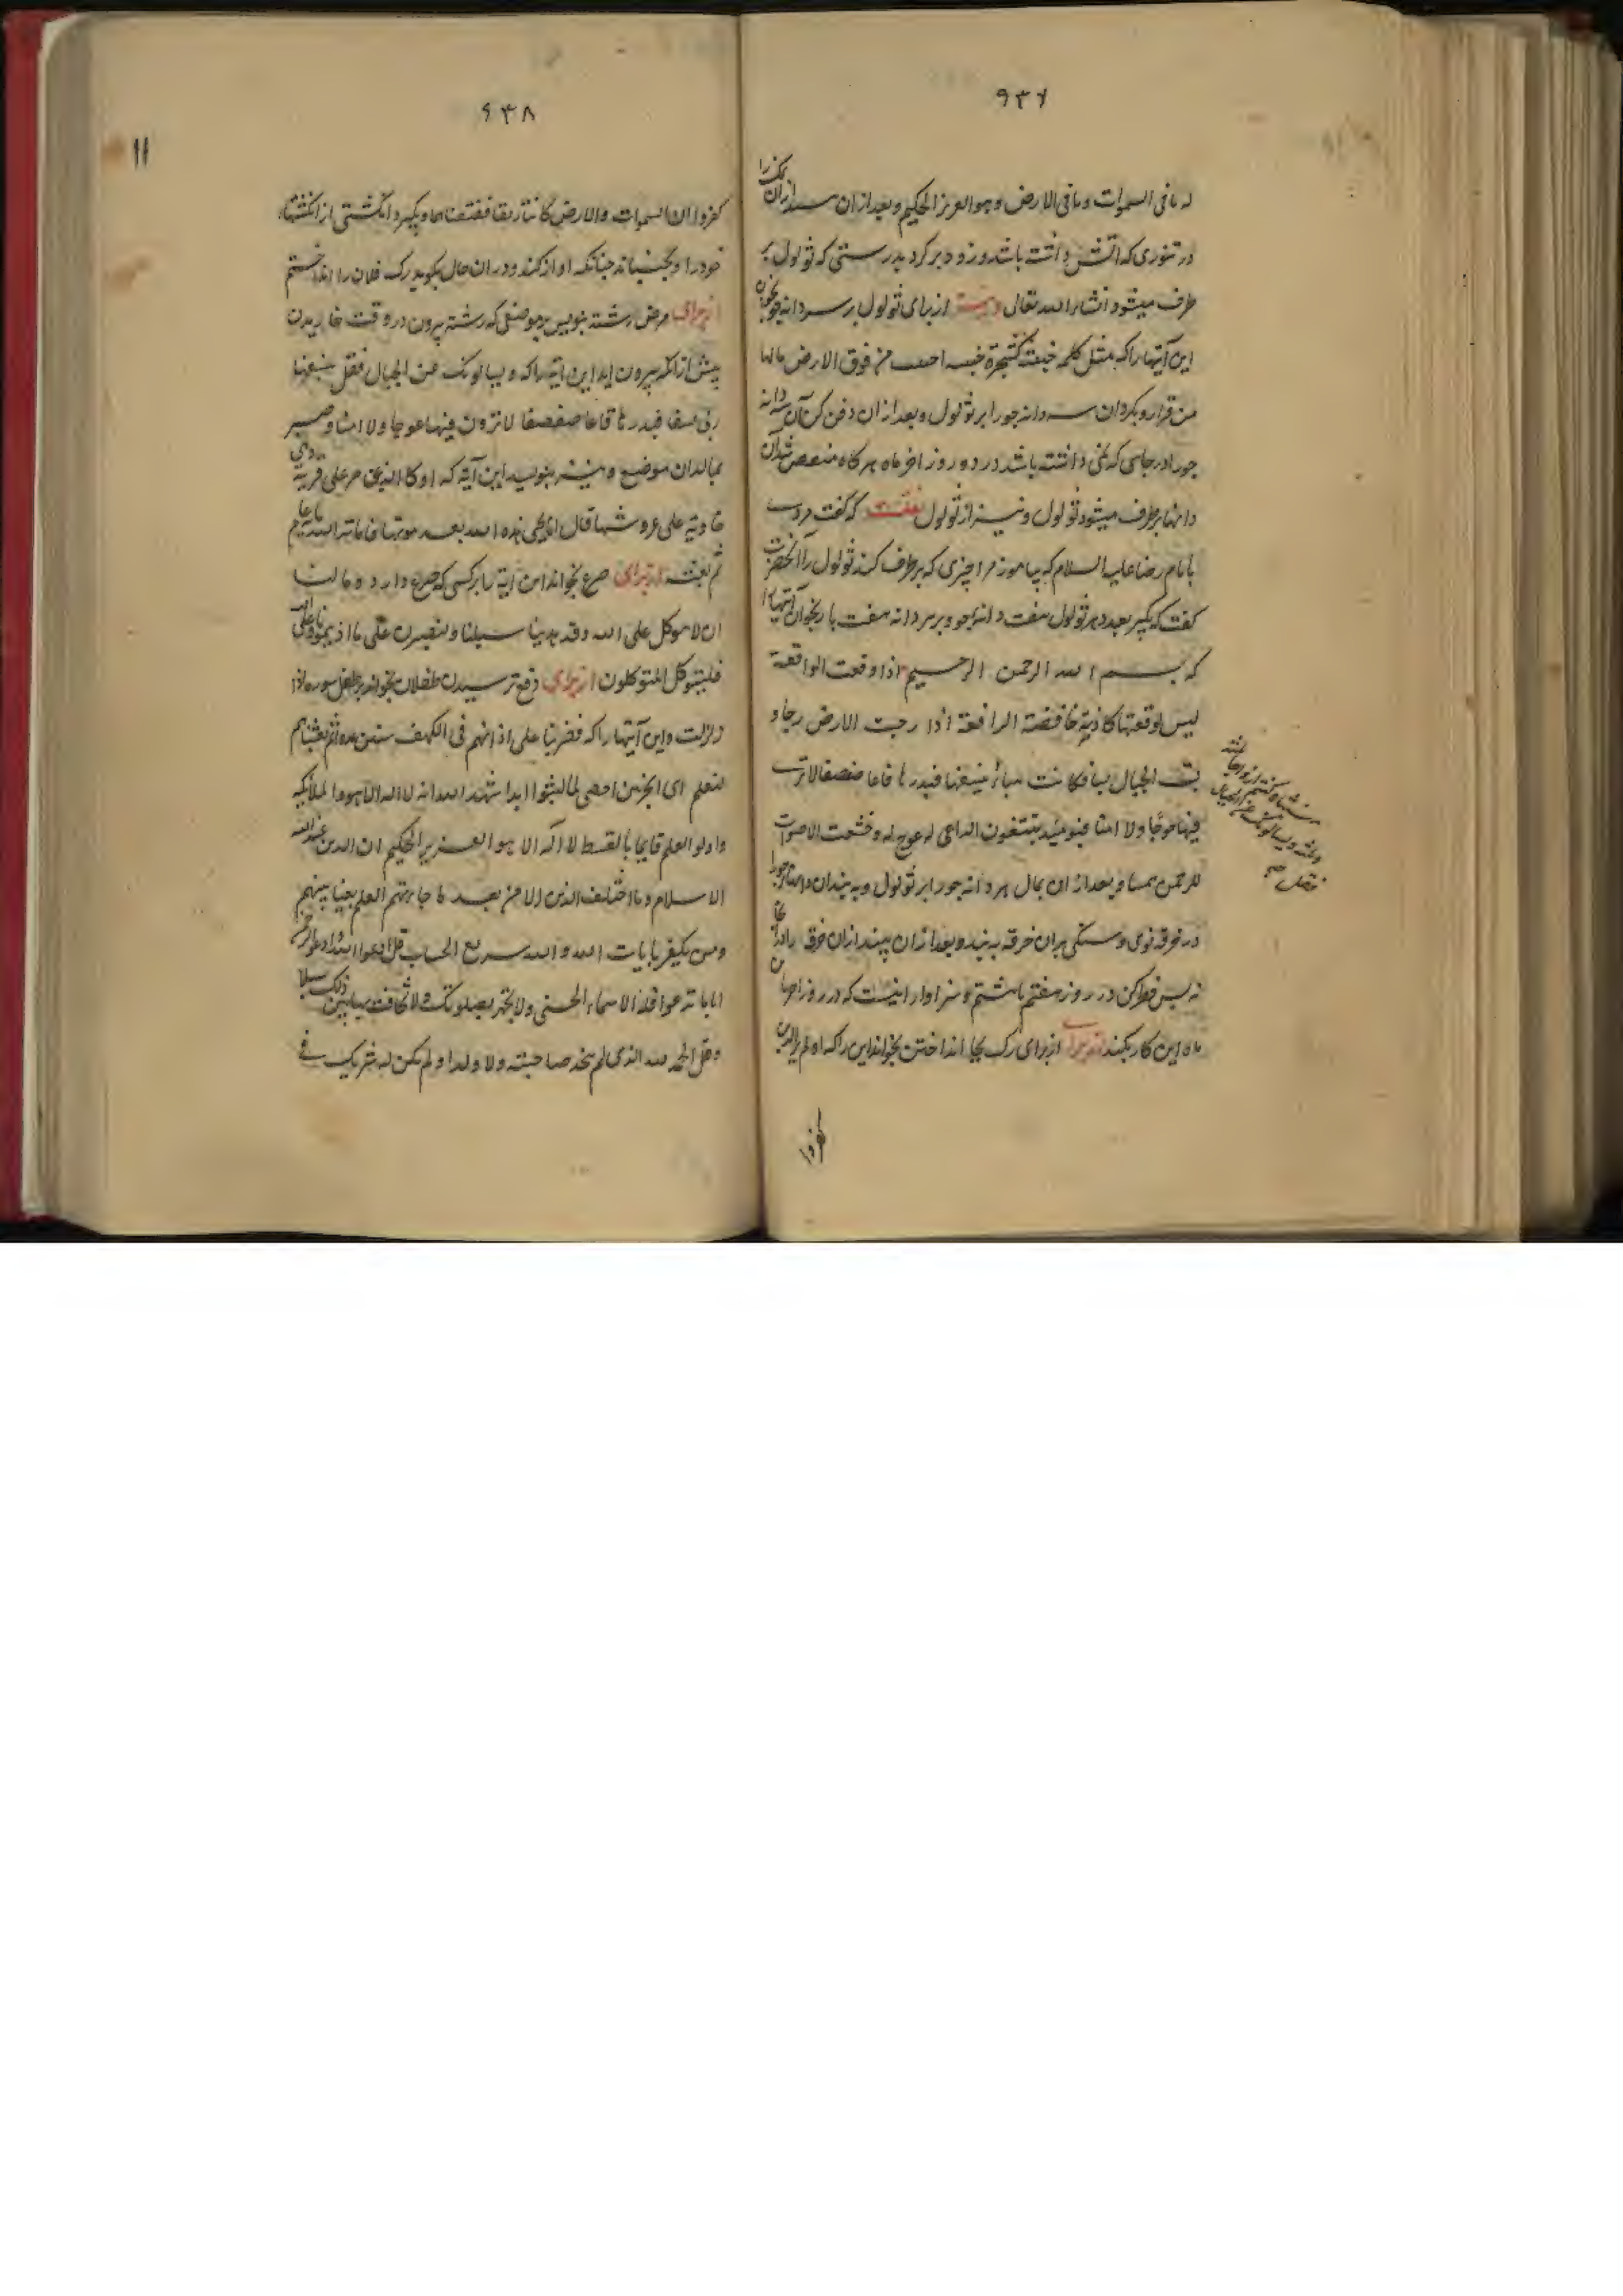 ۹۳۷
له مافی السموات و مافی الارض و هو العزیز الحکیم و بعد ازان بینداز آن نمک را
در تنوری که آتش داشته باشد و زود برگرد بدرستی که ثولول بر
طرف میشود انشاء الله تعالی و نیز از برای ثولول بر سر دانه جو بخوان
این آیتها را که مثل کلمه خبیثة کشجرة خبیثه اجتثت من فوق الارض مالها
من قرار و بگردان سه دانه جو را بر ثولول و بعد ازان دفن کن آن سه دانه
جو را در جایی که نمی داشته باشد در دو روز اخر ماه هرگاه متعفن شد آن
دانها برطرف میشود ثولول و نیز از ثولول که گفت مردی
بامام رضا علیه السلام که بیاموز مرا چیزی که برطرف کند ثولول را آنحضرت
گفت که بگیر بعدد هر ثولول هفت دانه جو و بر هر دانه هفت بار بخوان آیتها را
که بسم الله الرحمن الرحیم اذا وقعت الواقعة
لیس لوقعتها کاذبة خافضة الرافعة اذا رجت الارض رجا و
بست الجبال بسا فکانت هباء ینسفها فیذرها قاعا صفصفا لاتری
فیها عوجا ولا امتا فیومئذ یتبعون الداعی له عوج له و خشعت الاصوات
للرحمن همسا و بعد ازان بمال هر دانه جو را بر ثولول و به بند آن دانهای جو را
در خرقه نوی و سنگی بران خرقه به بند و بعد ازان بینداز آن خرقه را در
روز هفتم یا هشتم و سزاوار اینست که در روز
ماه این کار بکند از برای رک بجا انداختن بخواند این را که اولم یر الذین
منبثا و کنتم ازواجا ثلثة
و یسالونک عن الجبال
فقل صح
کفروا
۹۳۸
۱۱
کفروا ان السموات والارض کانتا رتقا ففتقناهما و بگیرد انگشتی از انگشتهای
خود را و بجنباند چنانکه اواز کند و دران حال بگوید رک فلان را انداختم
از برای مرض رشته بنویس بر موضعی که رشته بیرون در وقت خاریدن
پیش از آنکه بیرون آید این ایة را که و یسالونک عن الجبال فقل ینسفها
ربی نسفا فیذرها قاعا صفصفا لاترون فیها عوجا ولا امتا و صبر
بمالد ان موضع و نیز بنوسید این آیه که او کالذی مر علی قریة و هی
خاویة علی عروشها قال انی یحیی هذه الله بعد موتها فاماته الله مائة عام
ثم بعثه از برای صرع بخواند این ایة را بر کسی که صرع دارد و مالنا
ان لا نتوکل علی الله و قد هدینا سبلنا ولنصبرن علی ما اذیتمونا و علی الله
فلیتوکل المتوکلون از برای دفع ترسیدن طفلان بخواند بر طفل سوره اذا
زلزلت و این آیتها را که فضربنا علی اذانهم فی الکهف سنین عددا ثم بعثناهم
لنعلم ای الحزبین احصی لما لبثوا امدا شهد الله انه لا اله الا هو والملائکة
و اولو العلم قایما بالقسط لا اله الا هو العزیز الحکیم ان الدین عند الله
الاسلام و ما اختلف الذین الا من بعد ما جاءتهم العلم بغیا بینهم
و من یکفر بایات الله و الله سریع الحساب قل ادعوا الله او ادعوا الرحمن
ایاما تدعوا فله الاسماء الحسنی ولا تجهر بصلوتک ولا تخافت بها بین ذلک سبیلا
و قل الحمد لله الذی لم یتخذ صاحبته و لا ولدا و لم یکن له شریک فی